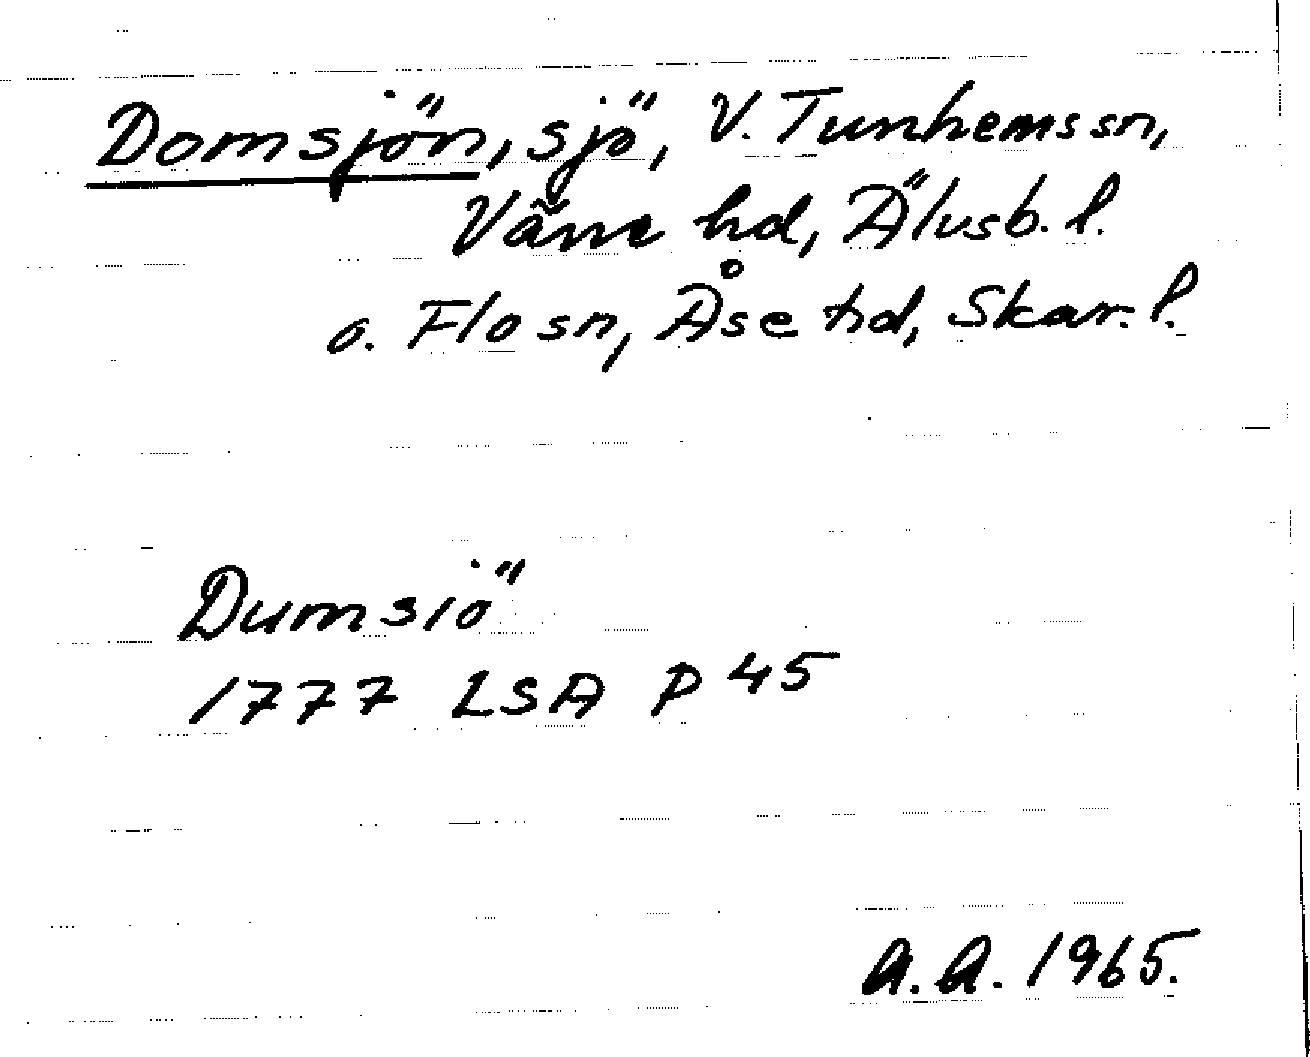 Domsjön, sjö, V. Tunhems sn,
Väne hd, Älvsb. l.
o. Flo sn, Åse hd, Skar. l.
Dumsiö
1777 LSA P 45
A.A. 1965.